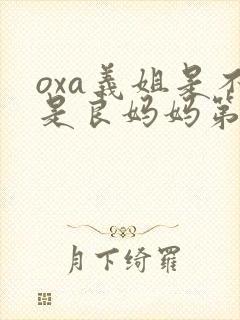 oxa義姐是不
是良妈妈第
月下绮罗